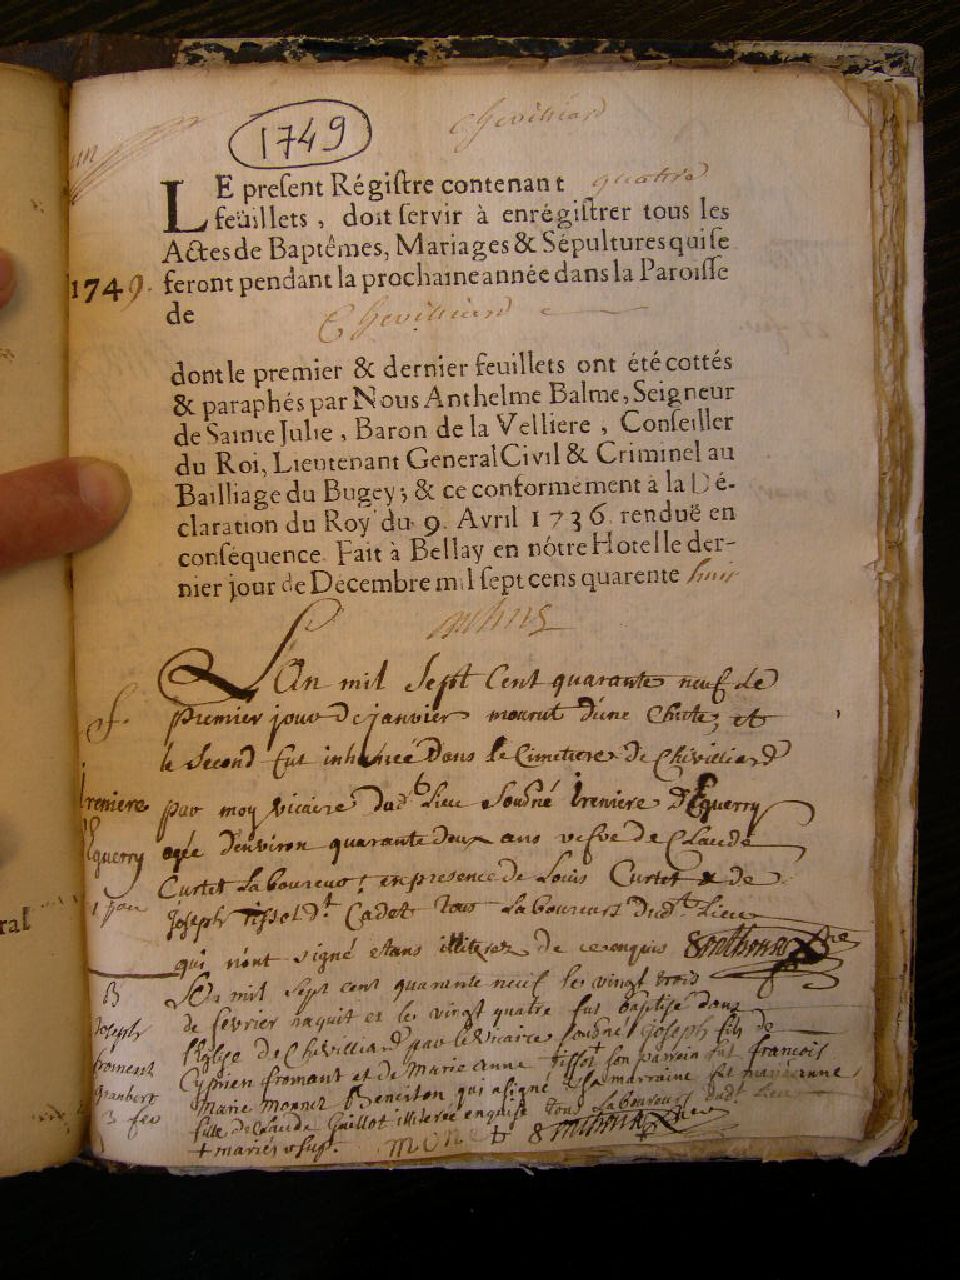 1749
Chevilliard
LE present Régistre contenant quatre
feüillets, doit servir à enrégistrer tous les
Actes de Baptêmes, Mariages & Sépultures qui se
1749. feront pendant la prochaine année dans la Paroisse
de Chevilliard
dont le premier & dernier feuillets ont été cottés
& paraphés par Nous Anthelme Balme, Seigneur
de Sainte Julie, Baron de la Velliere, Conseiller
du Roi, Lieutenant General Civil & Criminel au
Bailliage du Bugey; & ce conformément à la Dé-
claration du Roy du 9. Avril 1736. renduë en
conséquence. Fait à Bellay en nôtre Hotel le der-
nier jour de Décembre mil sept cens quarente huit
L'An mil sept cent quarante neuf le
premier jour de janvier mourut d'une chute, et
le second fut inhumée dans le Cimetiere de Chevilliard
par moy vicaire dud.t Lieu soussné Ireniere D'Eguerry
agée d'environ quarante deux ans vefve de Claude
Curtet Laboureur: en presence de Louis Curtet & de
Joseph Tissot d.t Cadet tous Laboureurs dud.t Lieu
qui n'ont signé etans illiterez de ce enquis
Ireniere
Eguerry
1 jan
L'An mil sept cent quarante neuf les vingt trois
de fevrier naquit et le vingt quatre fut baptisé dans
l'Eglise de Chevilliard par le vicaire soussné Joseph fils de
Cyprien fromont et de Marie anne Tissot son parrain fut francois
Marie Monnet qui a signé et sa marraine fut
fille de Claude Guillot illiterée enquise tous Laboureurs dud.t Lieu
+ mariés
B
Joseph
froment
3 fev
ral